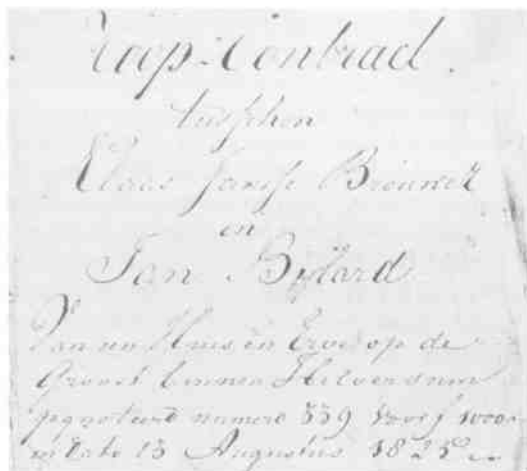 Coop-Contract.
tusschen
Claas Janse Brouwer
en
Jan Bijlard
Van een Huis en Erve op de
Groest binnen Hilversum
gequoteerd numero 339 voor f 1000-
in dato 13 Augustus